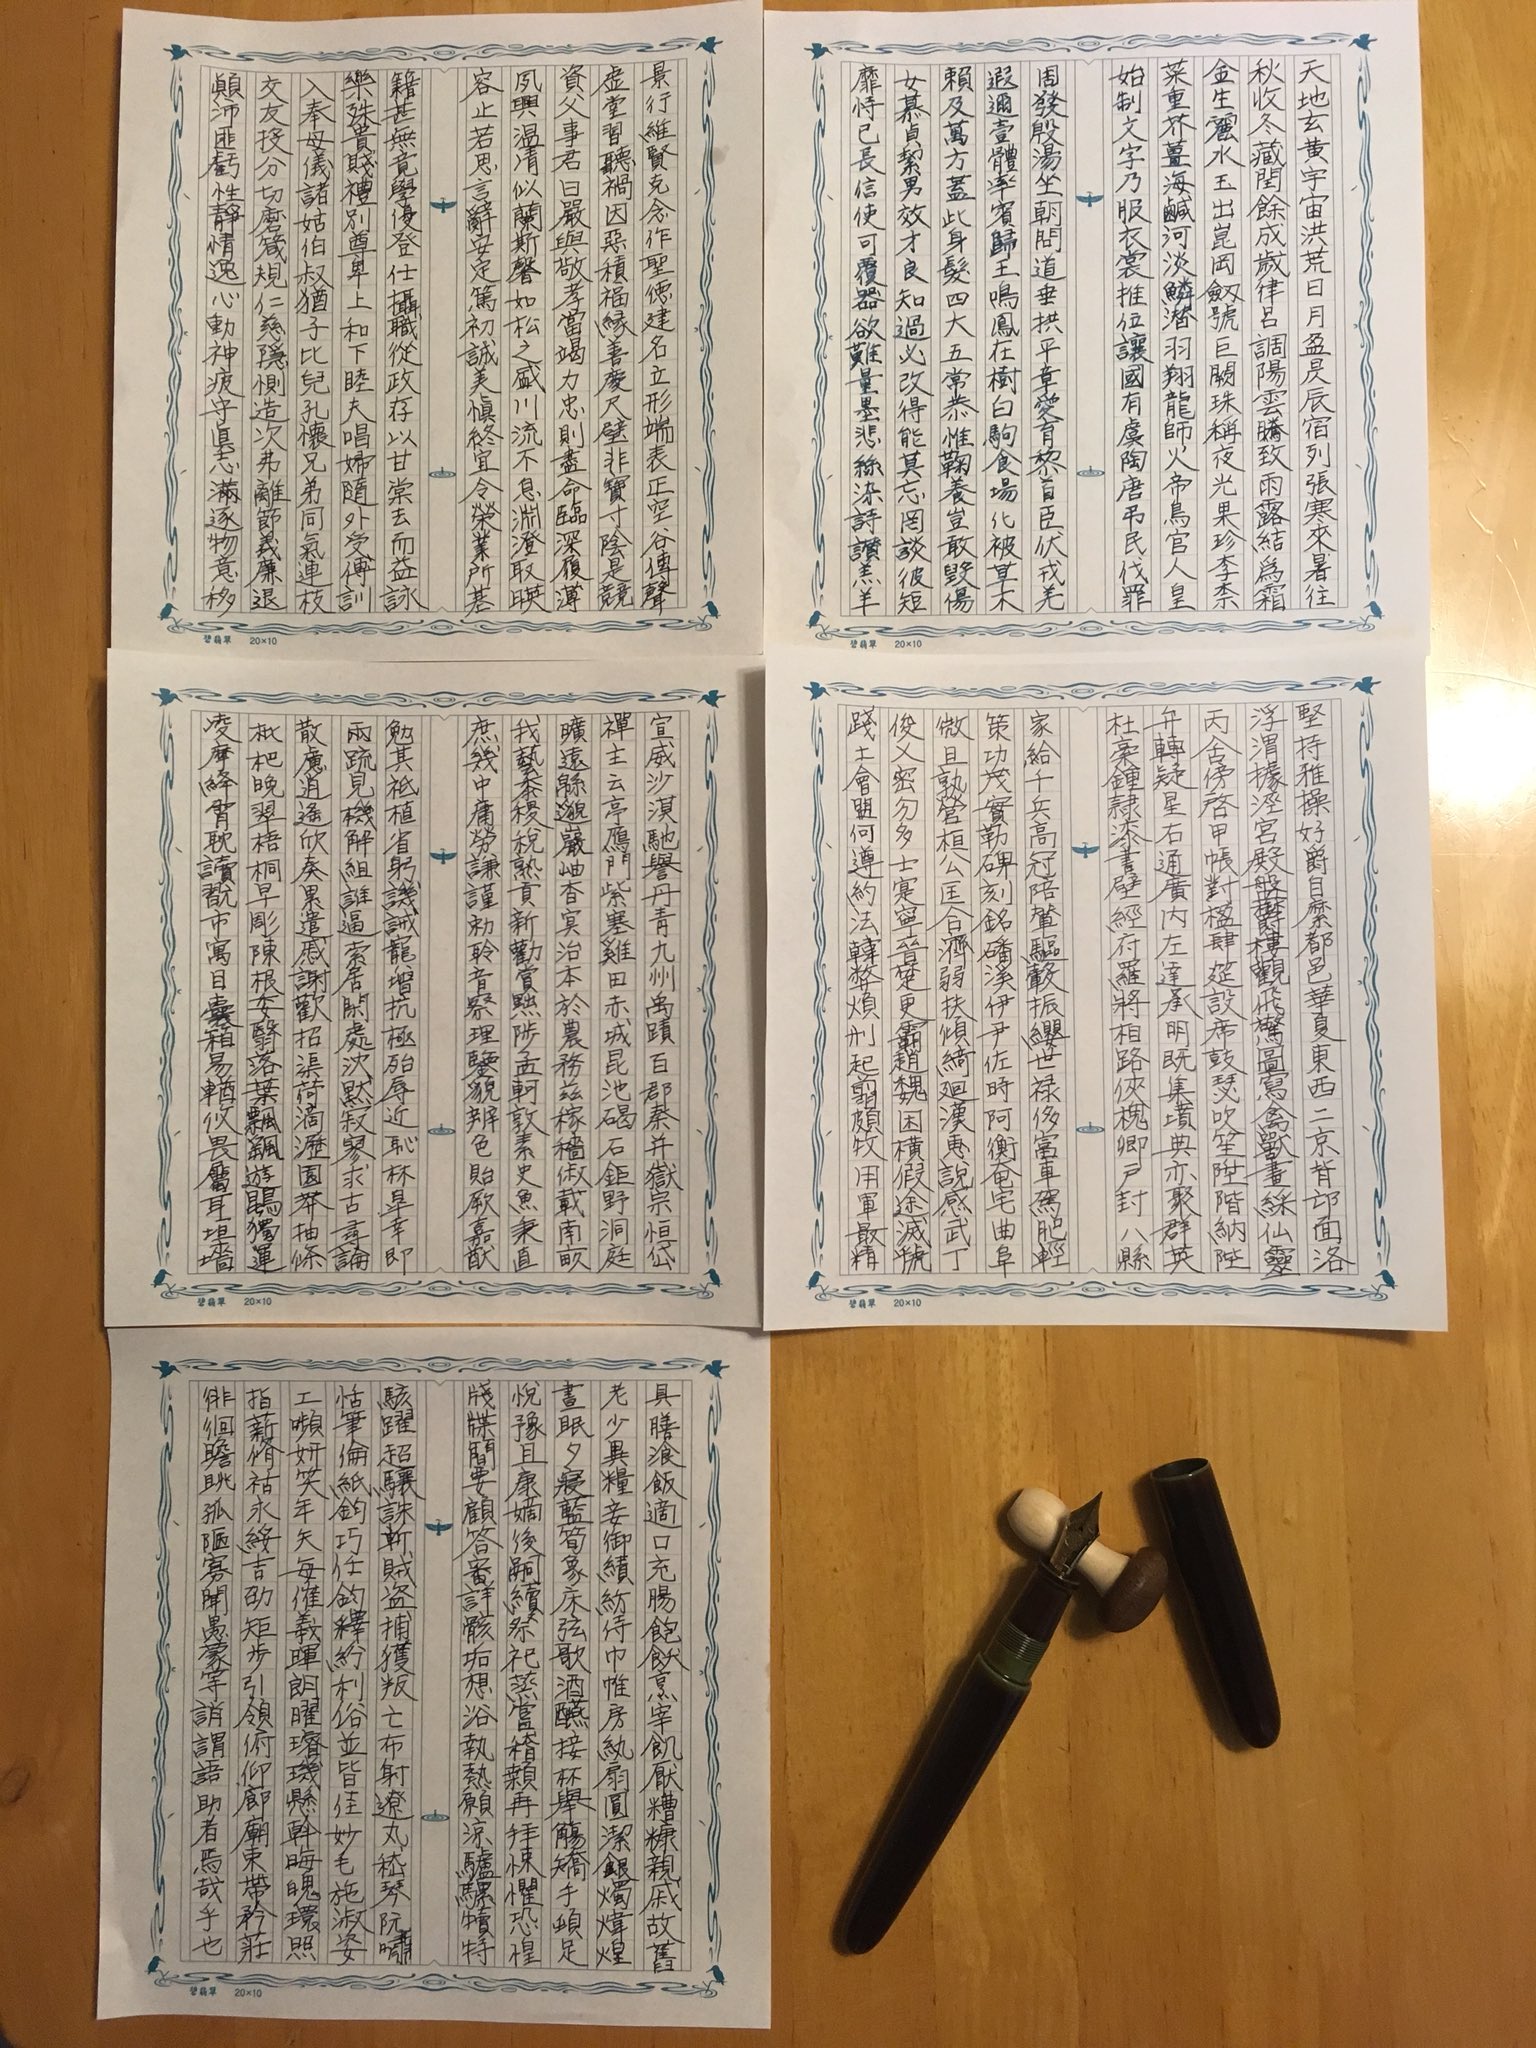 天地玄黄宇宙洪荒日月盈昃辰宿列張寒來暑往
秋收冬藏閏餘成歳律呂調陽雲騰致雨露結爲霜
金生麗水玉出崑岡劔號巨闕珠稱夜光果珍李柰
菜重芥薑海鹹河淡鱗潜羽翔龍師火帝鳥官人皇
始制文字乃服衣裳推位讓國有虞陶唐弔民伐罪
周發殷湯坐朝問道垂拱平章愛育黎首臣伏戎羌
遐邇壹體率賓歸王鳴鳳在樹白駒食場化被草木
賴及萬方蓋此身髮四大五常恭惟鞠養豈敢毀傷
女慕貞絜男效才良知過必改得能莫忘罔談彼短
靡恃己長信使可覆器欲難量墨悲絲染詩讃羔羊
碧翡翠 20×10
景行維賢克念作聖徳建名立形端表正空谷傳聲
虚堂習聽禍因惡積福縁善慶尺璧非寶寸陰是競
資父事君曰嚴與敬孝當竭力忠則盡命臨深履薄
夙興温凊似蘭斯馨如松之盛川流不息淵澄取暎
容止若思言辭安定篤初誠美慎終宜令榮業所基
籍甚無竟學優登仕攝職從政存以甘棠去而益詠
樂殊貴賤禮別尊卑上和下睦夫唱婦随外受傅訓
入奉母儀諸姑伯叔猶子比兒孔懷兄弟同氣連枝
交友投分切磨箴規仁慈隠惻造次弗離節義廉退
顛沛匪虧性靜情逸心動神疲守真志滿逐物意移
碧翡翠 20×10
堅持雅操好爵自縻都邑華夏東西二京背邙面洛
浮渭據涇宮殿盤欝樓觀飛驚圖寫禽獸畫綵仙靈
丙舎傍啓甲帳對楹肆筵設席鼓瑟吹笙陞階納陛
弁轉疑星右通廣内左達承明既集墳典亦聚群英
杜稾鍾隷漆書壁經府羅將相路俠槐卿戸封八縣
家給千兵高冠陪輦驅轂振纓世禄侈富車駕肥輕
策功茂實勒碑刻銘磻溪伊尹佐時阿衡奄宅曲阜
微旦孰營桓公匡合濟弱扶傾綺廻漢恵説感武丁
俊乂密勿多士寔寧晉楚更霸趙魏困横假途滅虢
踐土會盟何遵約法韓弊煩刑起翦頗牧用軍最精
碧翡翠 20×10
宣威沙漠馳譽丹青九州禹蹟百郡秦并嶽宗恒岱
禪主云亭鴈門紫塞雞田赤城昆池碣石鉅野洞庭
曠遠緜邈巖岫杳冥治本於農務茲稼穡俶載南畝
我藝黍稷税熟貢新勸賞黜陟孟軻敦素史魚秉直
庶幾中庸勞謙謹勅聆音察理鑒貌辨色貽厥嘉猷
勉其祗植省躬譏誡寵增抗極殆辱近恥林皐幸即
兩疏見機解組誰逼索居閑處沈默寂寥求古尋論
散慮逍遥欣奏累遣慼謝歡招渠荷滴瀝園莽抽條
枇杷晩翠梧桐早彫陳根委翳落葉飄颻遊鵾獨運
凌摩絳霄耽讀翫市寓目囊箱易輶攸畏屬耳垣墻
碧翡翠 20×10
具膳飡飯適口充腸飽飫烹宰飢厭糟糠親戚故舊
老少異糧妾御績紡侍巾帷房紈扇圓潔銀燭煒煌
晝眠夕寢藍筍象床弦歌酒讌接杯舉觴矯手頓足
悦豫且康嫡後嗣續祭祀蒸嘗稽顙再拜悚懼恐惶
牋牒簡要顧答審詳骸垢想浴執熱願涼驢騾犢特
駭躍超驤誅斬賊盗捕獲叛亡布射遼丸嵆琴阮嘯
恬筆倫紙鈞巧任鈞釋紛利俗並皆佳妙毛施淑姿
工嚬妍笑年矢毎催羲暉朗曜璿璣懸斡晦魄環照
指薪脩祜永綏吉劭矩歩引領俯仰廊廟束帶矜莊
徘徊瞻眺孤陋寡聞愚蒙等誚謂語助者焉哉乎也
碧翡翠 20×10